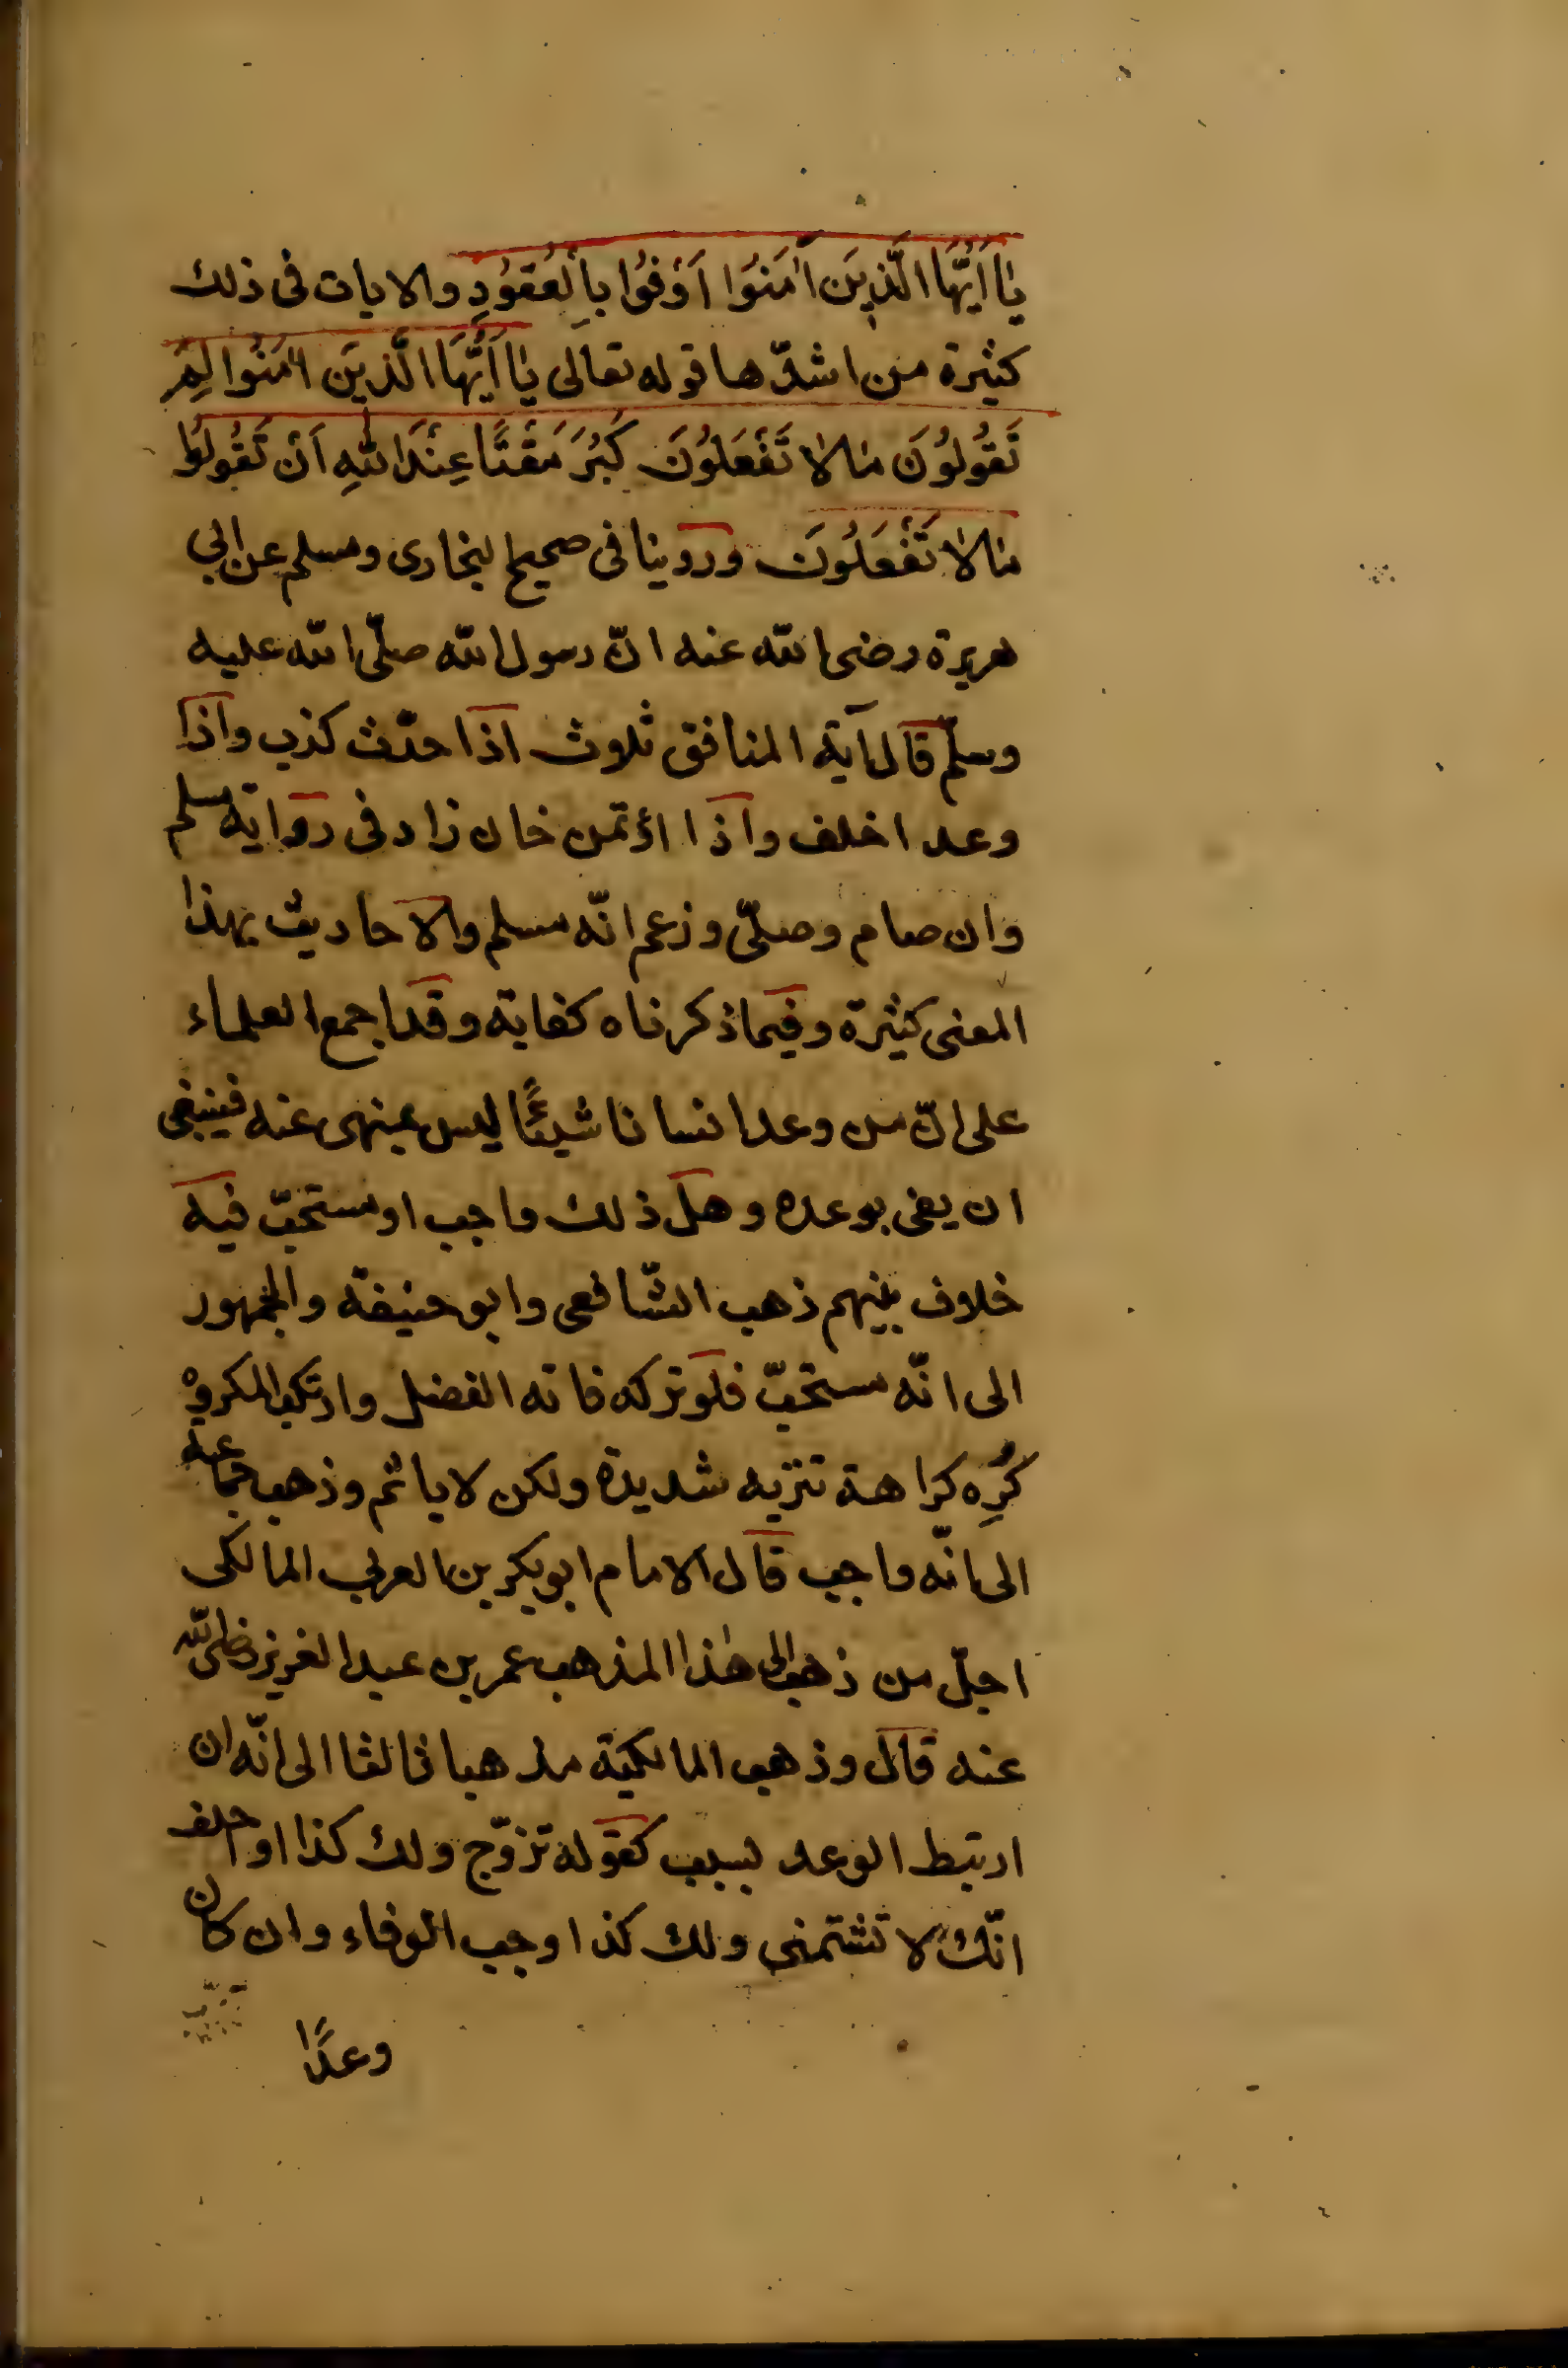 يٰا اَيُّهَا الَّذِيَن اٰمَنوُا اَوْفوُا بِالْعُقوُدِ والايات فى ذلك
كثيرة من اشدّها قوله تعالى يٰا اَيُّهَا الَّذِيَن اٰمَنُوا لِمَ
تَقُولُونَ مٰالاٰ تَفْعَلوُنَ كَبُرَ مَقْتًا عِنْدَ اللهِ اَنْ تَقُولوُا
مٰالاٰ تَفْعَلُونَ وروينا فى صحيح البخارى ومسلم عن ابي
هريرة رضى الله عنه انّ رسول الله صلّى الله عليه
وسلّم قال آية المنافق ثلوث اذا حدّث كذب واذا
وعد اخلف واذا اؤتمن خان زاد فى رواية مسلم
وان صام وصلّى وزعم انّه مسلم والاحاديث بهذا
المعنى كثيرة وفيما ذكرناه كفاية وقد اجمع العلماء
على انّ من وعد انسانا شيئًا ليس بمنهى عنه فينبغى
ان يفى بوعده وهل ذلك واجب او مستحبّ فيه
خلاف بينهم ذهب الشّافعى وابو حنيفة والجمهور
الى انّه مستحبّ فلو تركه فاته الفضل وارتكب المكروه
كُرِه كراهة تنزيه شديدة ولكن لا ياثم وذهب جماعة
الى انّه واجب قال الامام ابو بكر بن العربي المالكى
اجلّ من ذهب الى هٰذا المذهب عمر بن عبد العزيز رضى الله
عنه قال وذهب المالكيّة مذهبا ثالثا الى انّه ان
ارتبط الوعد بسبب كقوله تزوّج ولك كذا او احلف
انّك لا تشتمنى ولك كذا وجب الوفاء وان كان
وعدًا